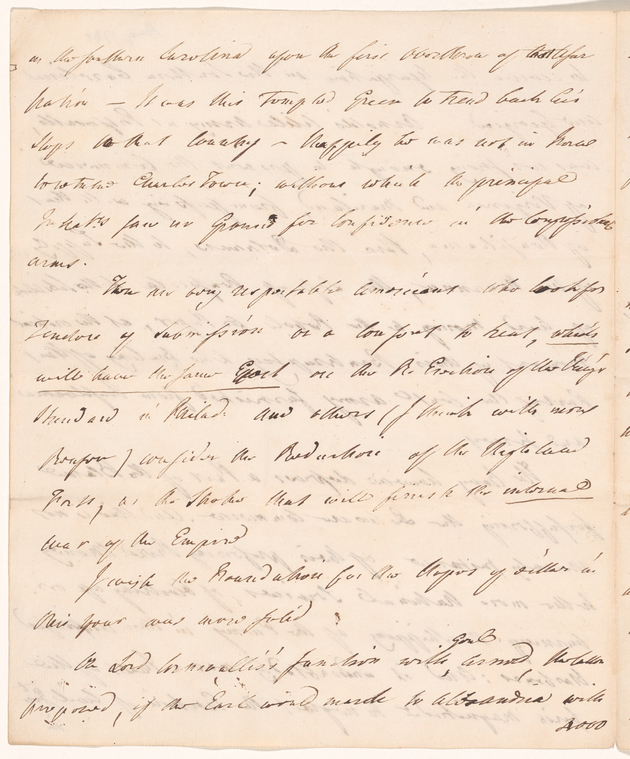 in the southern Carolina upon the first overthrow of that
ration — It was this tempted Green to tread back his
steps to that Country — Happily he was not in Force
to retake Charles Town; without which the principal
Inhabts saw no Ground for Confidence in the Congressional
arms.
There are very respectable Americans who look for
Tenders of Submission or a Consent to treat, which
will have the same Effect on the Re Erection of the King's
Standard in Philad: and others (I think with more
Reason) consider the Reduction of the Highland
Forts, as the Stroke that will finish the internal
War of the Empire
I wish the Foundation for the Hopes of either in
this year was more solid
On Lord Cornwallis's Junction with Genl Arnold, the latter
proposed, if the Earl would march to Alexandria with
4000